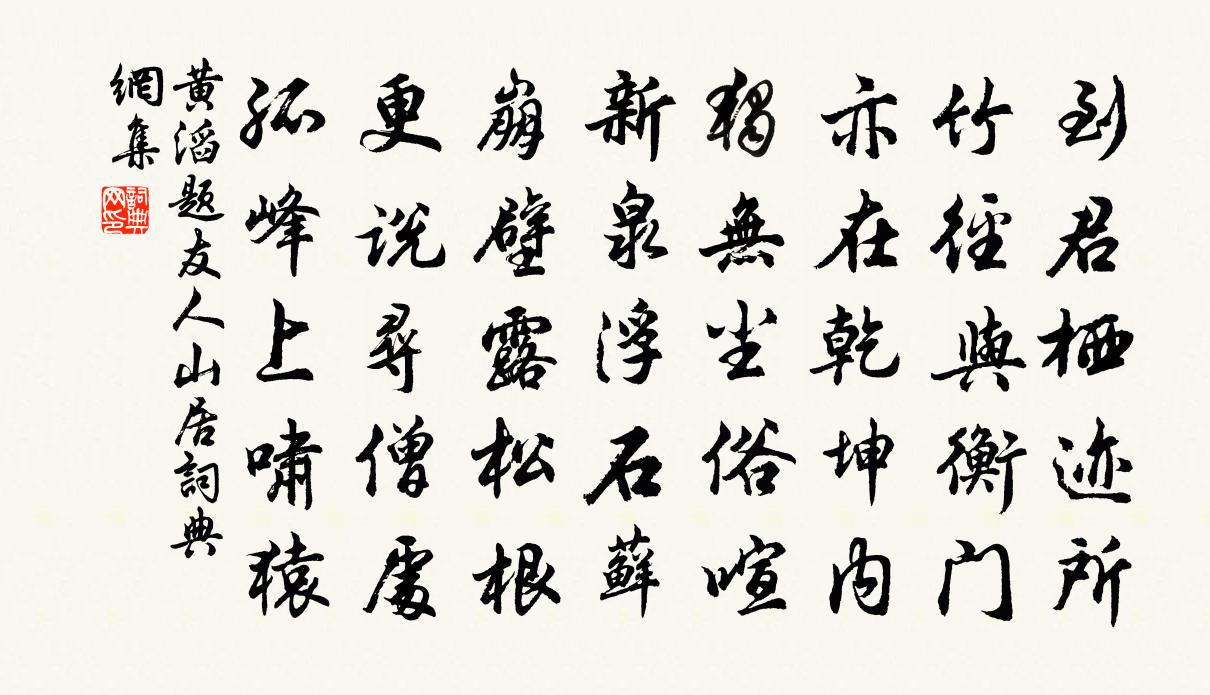 到君栖迹所
竹徑與衡门
亦在乾坤内
獨無尘俗喧
新泉浮石蘚
崩壁露松根
更说尋僧處
孤峰上嘯猿
黄滔题友人山居詞典
網集
詞典网印